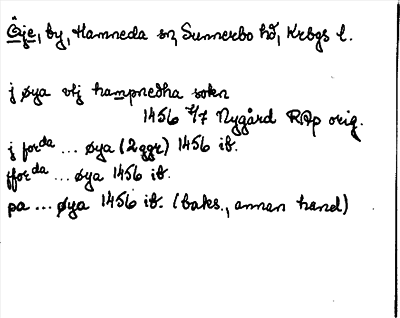 Öje, by, Hamneda sn, Sunnerbo hd, Krbgs l.
j øya vtj hampnedha sokn
1456 2/7 Nygård RAp orig.
j forda ... øya (2 ggr) 1456 ib.
fforda ... øya 1456 ib.
pa ... øya 1456 ib. (baks., annan hand)